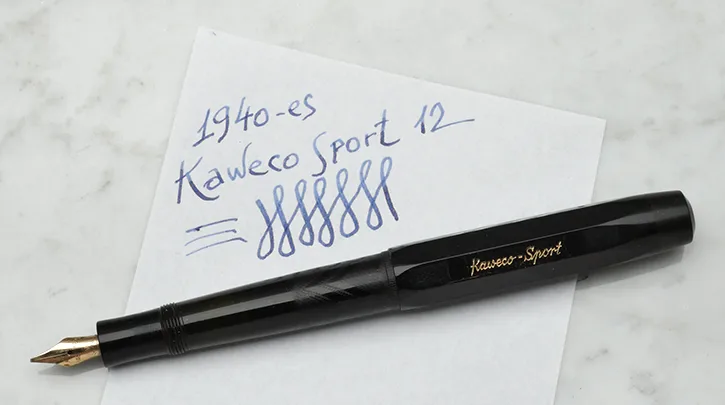 1940-es
Kaweco Sport 12
Kaweco-Sport